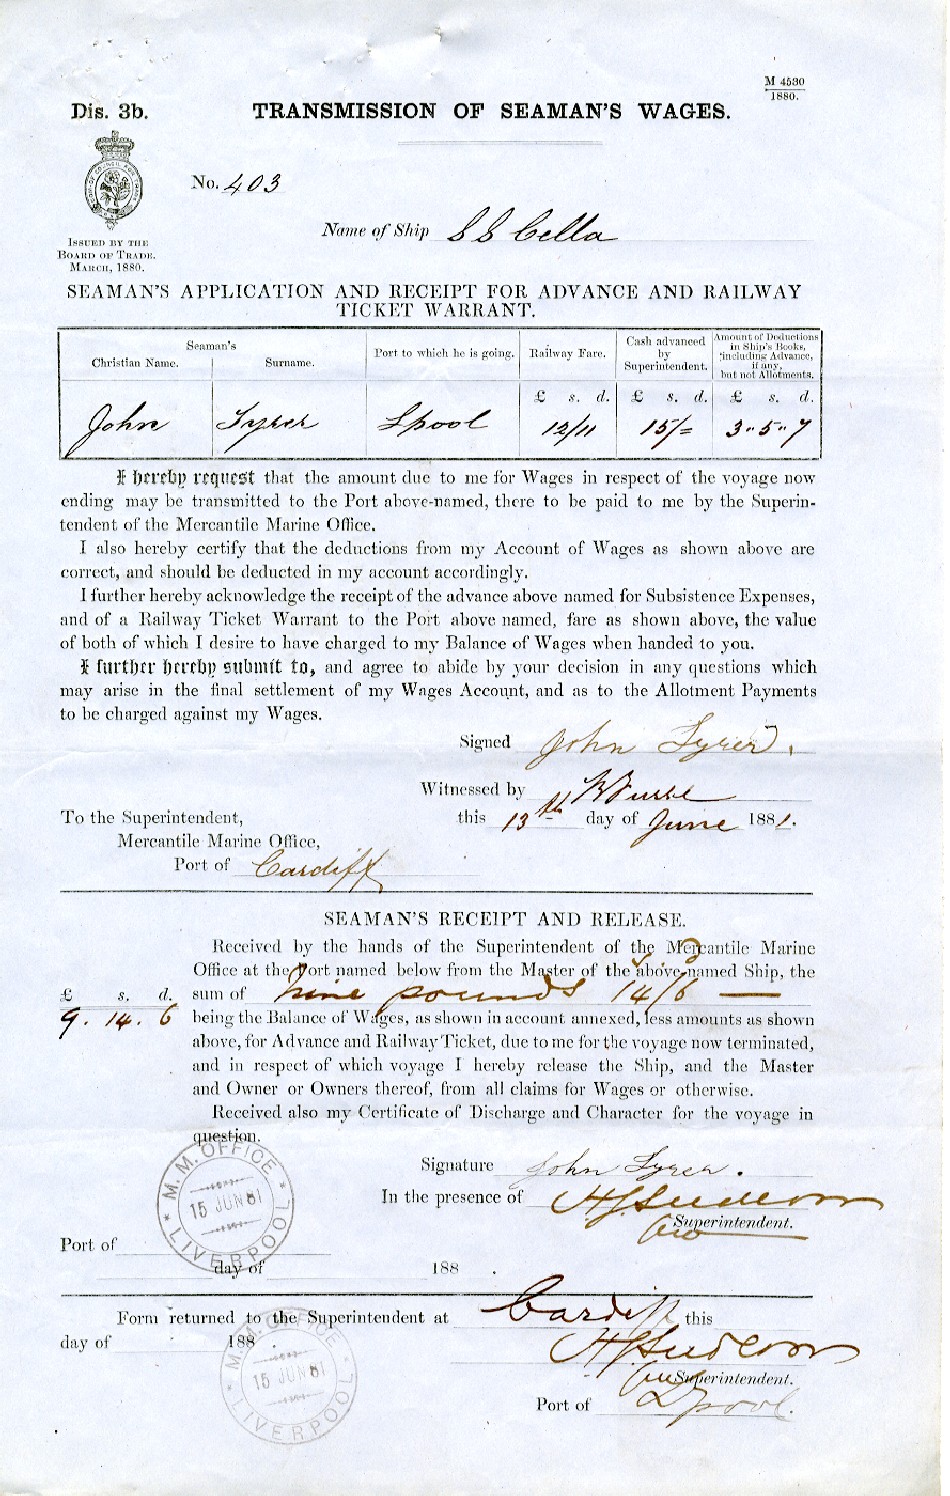 M 4530
1880.
Dis. 3b.
TRANSMISSION OF SEAMAN'S WAGES.
No. 403
Name of Ship SS Cella
ISSUED BY THE
BOARD OF TRADE.
MARCH, 1880.
SEAMAN'S APPLICATION AND RECEIPT FOR ADVANCE AND RAILWAY
TICKET WARRANT.
Seaman's
Christian Name. Surname.
Port to which he is going.
Railway Fare.
Cash advanced
by
Superintendent.
Amount of Deductions
in Ship's Books,
including Advance,
if any,
but not Allotments.
£ s. d. £ s. d. £ s. d.
John Tyrer Lpool 12/11 15/= 3"5"7
I hereby request that the amount due to me for Wages in respect of the voyage now
ending may be transmitted to the Port above-named, there to be paid to me by the Superin-
tendent of the Mercantile Marine Office.
I also hereby certify that the deductions from my Account of Wages as shown above are
correct, and should be deducted in my account accordingly.
I further hereby acknowledge the receipt of the advance above named for Subsistence Expenses,
and of a Railway Ticket Warrant to the Port above named, fare as shown above, the value
of both of which I desire to have charged to my Balance of Wages when handed to you.
I further hereby submit to, and agree to abide by your decision in any questions which
may arise in the final settlement of my Wages Account, and as to the Allotment Payments
to be charged against my Wages.
Signed John Tyrer.
Witnessed by
this 13th day of June 1881.
To the Superintendent,
Mercantile Marine Office,
Port of Cardiff
SEAMAN'S RECEIPT AND RELEASE.
Received by the hands of the Superintendent of the Mercantile Marine
Office at the Port named below from the Master of the above-named Ship, the
sum of nine pounds 14/6 —
£ s. d.
9. 14. 6
being the Balance of Wages, as shown in account annexed, less amounts as shown
above, for Advance and Railway Ticket, due to me for the voyage now terminated,
and in respect of which voyage I hereby release the Ship, and the Master
and Owner or Owners thereof, from all claims for Wages or otherwise.
Received also my Certificate of Discharge and Character for the voyage in
question.
Signature John Tyrer.
In the presence of
Superintendent.
M. M. OFFICE
15 JUN 81
LIVERPOOL
Port of
day of 188 .
Form returned to the Superintendent at Cardiff this
day of 188 .
Superintendent.
M. M. OFFICE
15 JUN 81
LIVERPOOL
Port of Lpool.